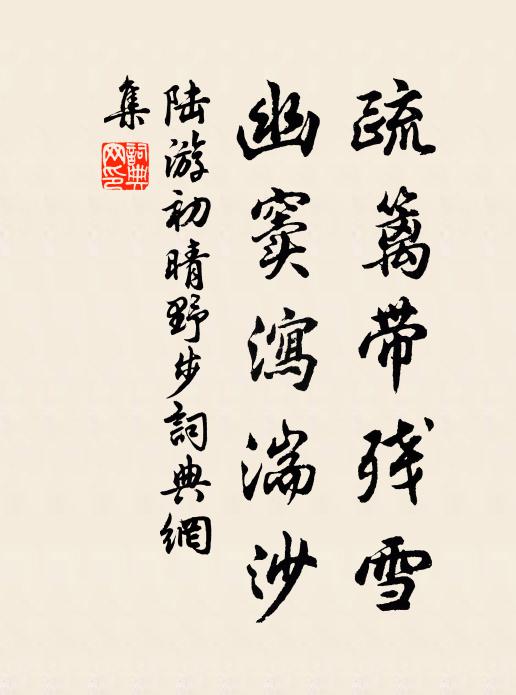 疏篱带残雪
幽窦泻湍沙
陆游初晴野步詞典網
集
詞典
网印